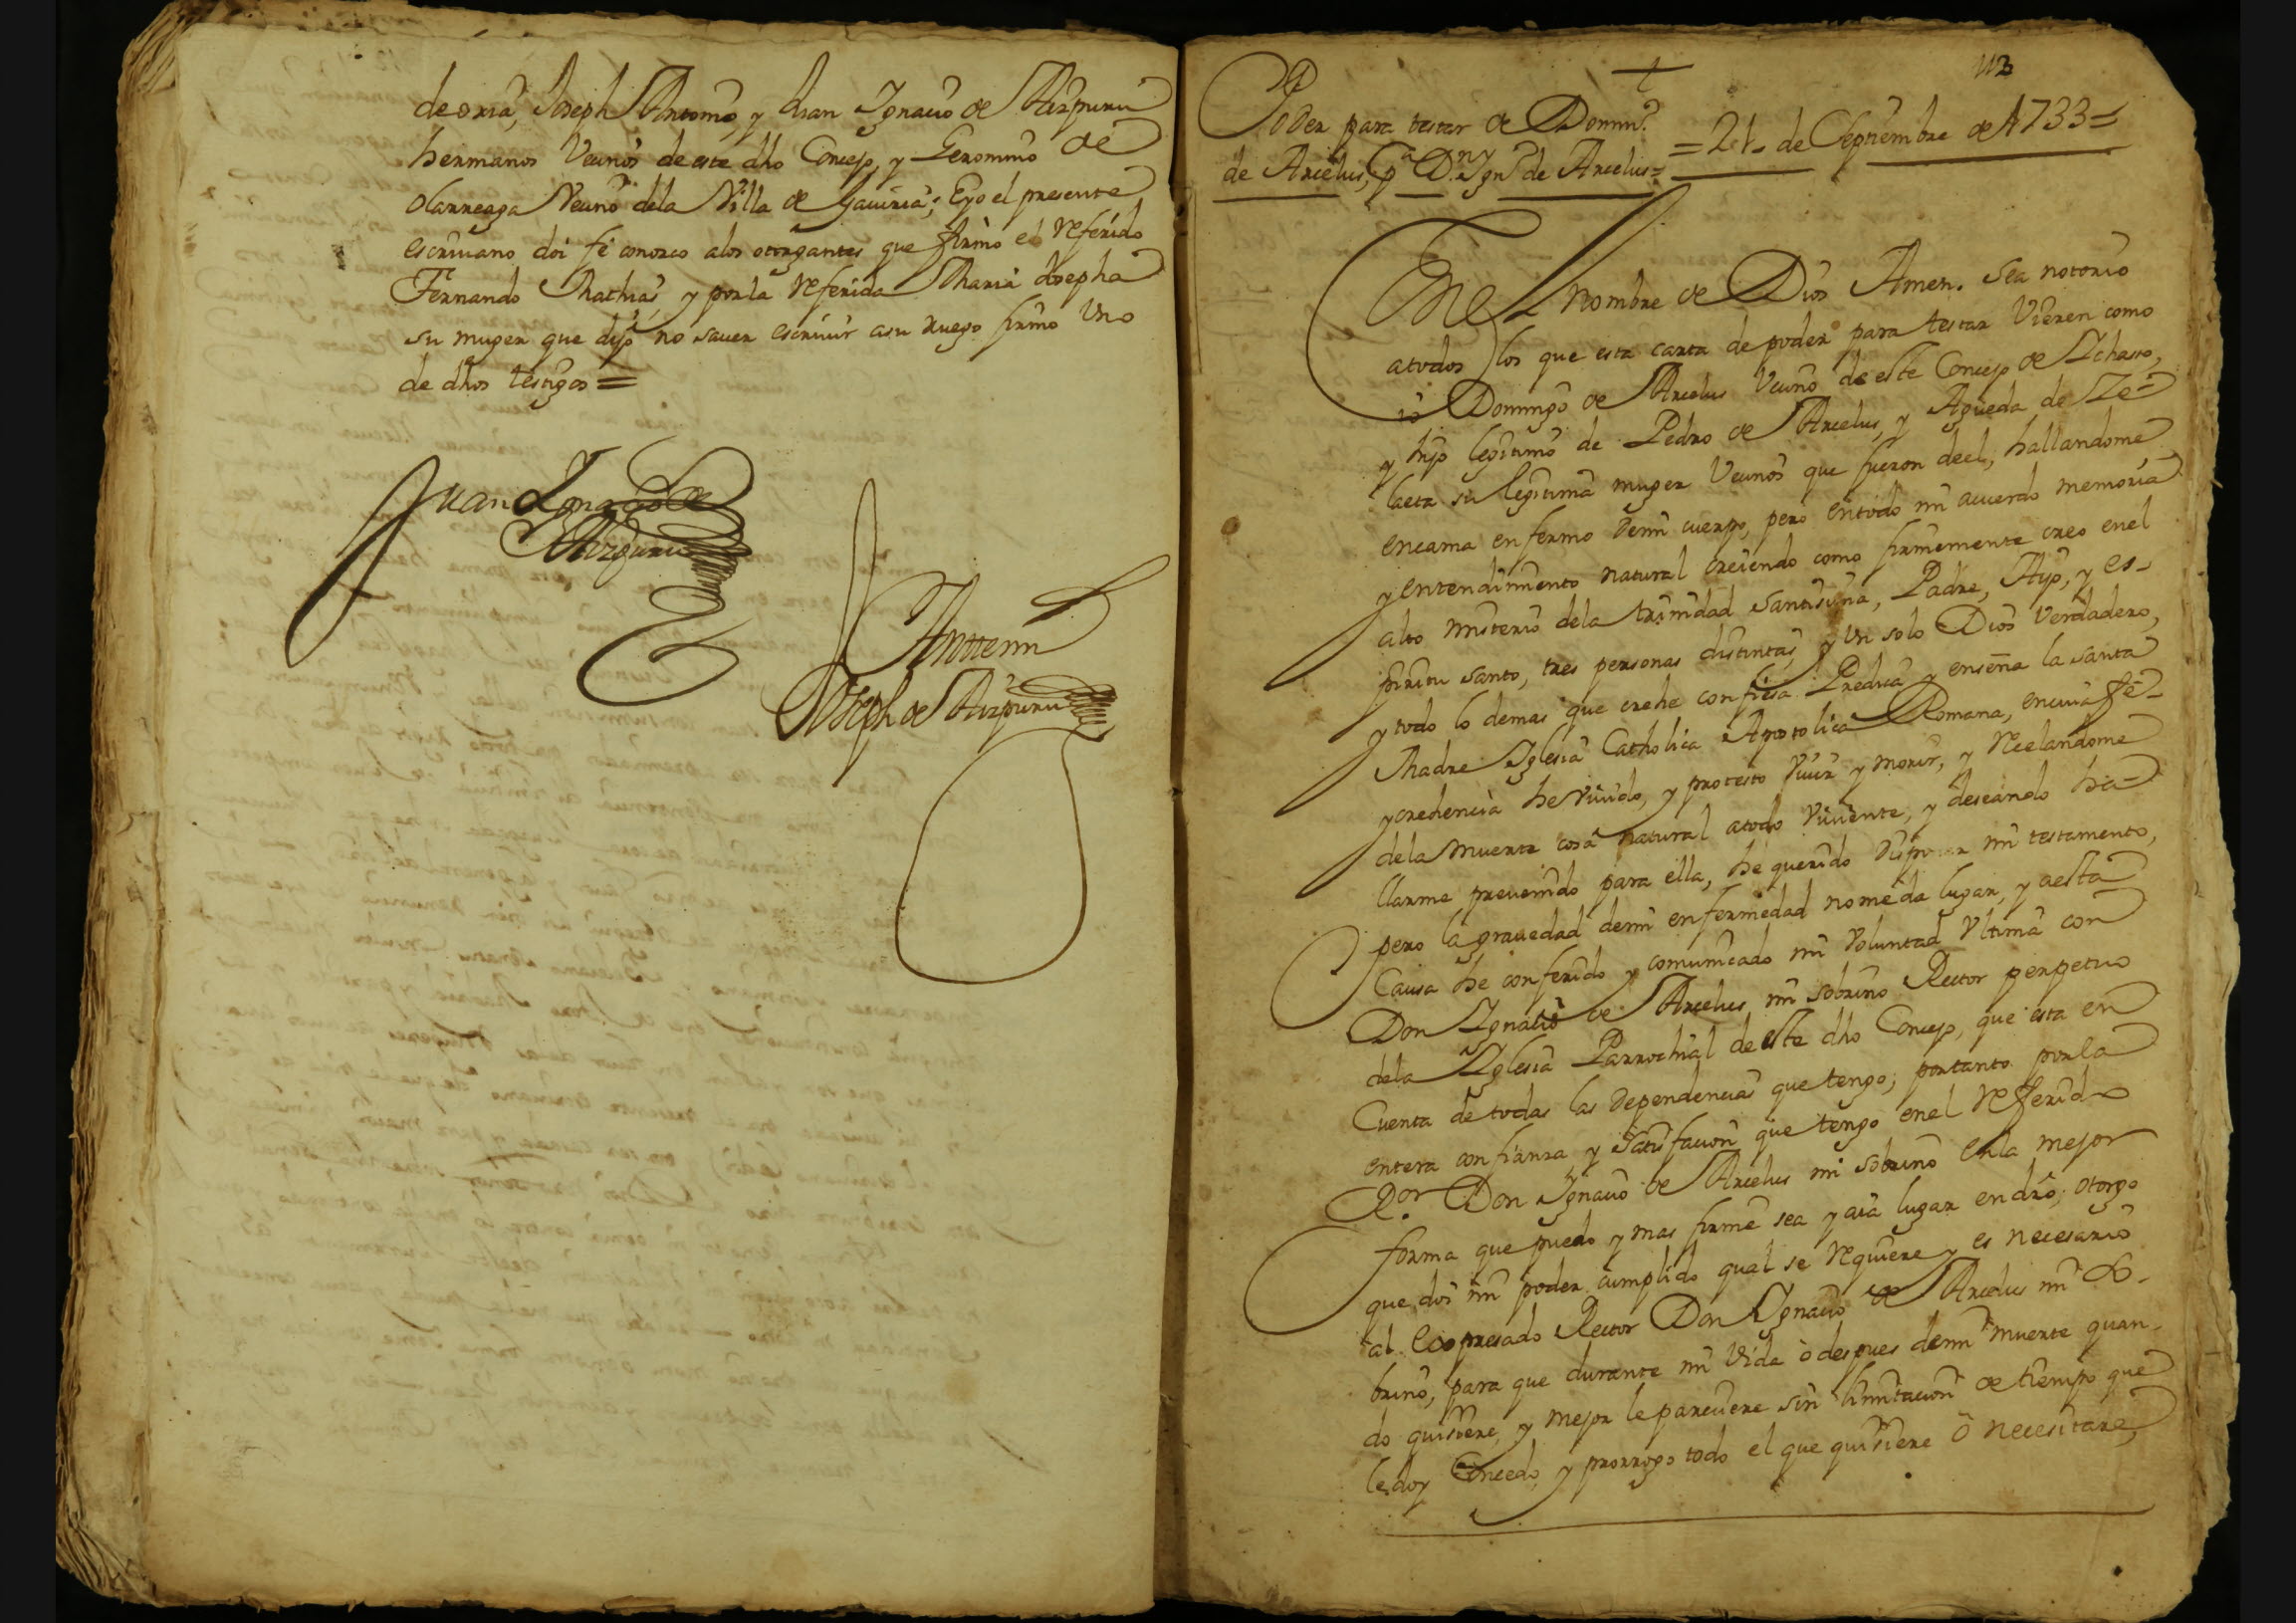 de oria, Joseph Antonio, y Juan Ignacio de Aizpuru
hermanos Vecinos de este dho Concejo, y Geronimo de
olarreaga Vecino dela Villa de Gauiria; Eyo el presente
escriuano doi fé conozco alos otorgantes que firmo el referido
Fernando Mathias, y porla referida Maria Josepha
su muger que dijo no sauer escriuir asu ruego firmo Uno
de dhos testigos =
Juan Ignacio de
Aizpuru
Antte mi
Joseph de Aizpuru
113
Poder para testar de Domin.º
de Arcelus, p.ª D.n Ign.º de Arcelus =
= 21 de Septiembre de 1733 =
En el nombre de Dios Amen. Sea notorio
atodos los que esta carta de poder para testar Vieren como
io Domingo de Arcelus Vecino de este Concejo de Ichaso,
y hijo legitimo de Pedro de Arcelus, y Agueda de Ze-
laeta su legitima muger Vecinos que fueron deel, hallandome
encama enfermo demi cuerpo, pero entodo mi acuerdo memoria
y entendimiento natural creiendo como firmemente creo enel
alto misterio dela trinidad Santisima, Padre, Hijo, y es-
piritu santo, tres personas distintas, y Un solo Dios Verdadero,
y todo lo demas que crehe confiesa Predica y enseña la santa
Madre Iglesia Catholica Apostolica Romana, encuia fé
ycrehencia he viuido, y protesto viuir y morir, y recelandome
dela muerte cosa natural atodo viuiente, y deseando ha-
llarme preuenido para ella, he querido disponer mi testamento,
pero la grauedad demi enfermedad nome da lugar, y aesta
Causa he conferido y comunicado mi voluntad Ultima con
Don Ignacio de Arcelus mi sobrino Rector perpetuo
dela Iglesia Parrochial de este dho Concejo, que esta en
Cuenta de todas las dependencias que tengo; portanto porla
entera confianza y satisfacion que tengo enel refferido
R.or Don Ignacio de Arcelus mi sobrino enla mejor
forma que puedo y mas firme sea y aia lugar endro; otorgo
que doi mi poder cumplido qual se requiere y es necesario
al expresado Rector Don Ignacio de Arcelus mi so-
brino, para que durante mi Vida ò despues demi muerte quan-
do quisiere, y mejor le pareciere sin limitacion de tiempo que
ledoy Concedo, y prorrogo todo el que quisiere ò necesitare,